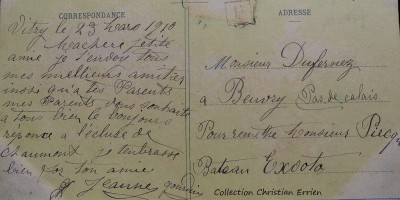 CORRESPONDANCE
Vitry le 23 Mars 1910
Ma chere petite
amie je t'envoy tous
mes meilleurs amities
insi qu'a tes Parents
mes Parents vous souhaite
a tous bien le bonjour
réponce a l'écluse de
Chaumont je t'embrasse
bien for ton amie
Jeanne
ADRESSE
Monsieur Dufernez
a Beuvry Pas de calais
Pour remettre Monsieur
Bateau Excoto
Collection Christian Errien